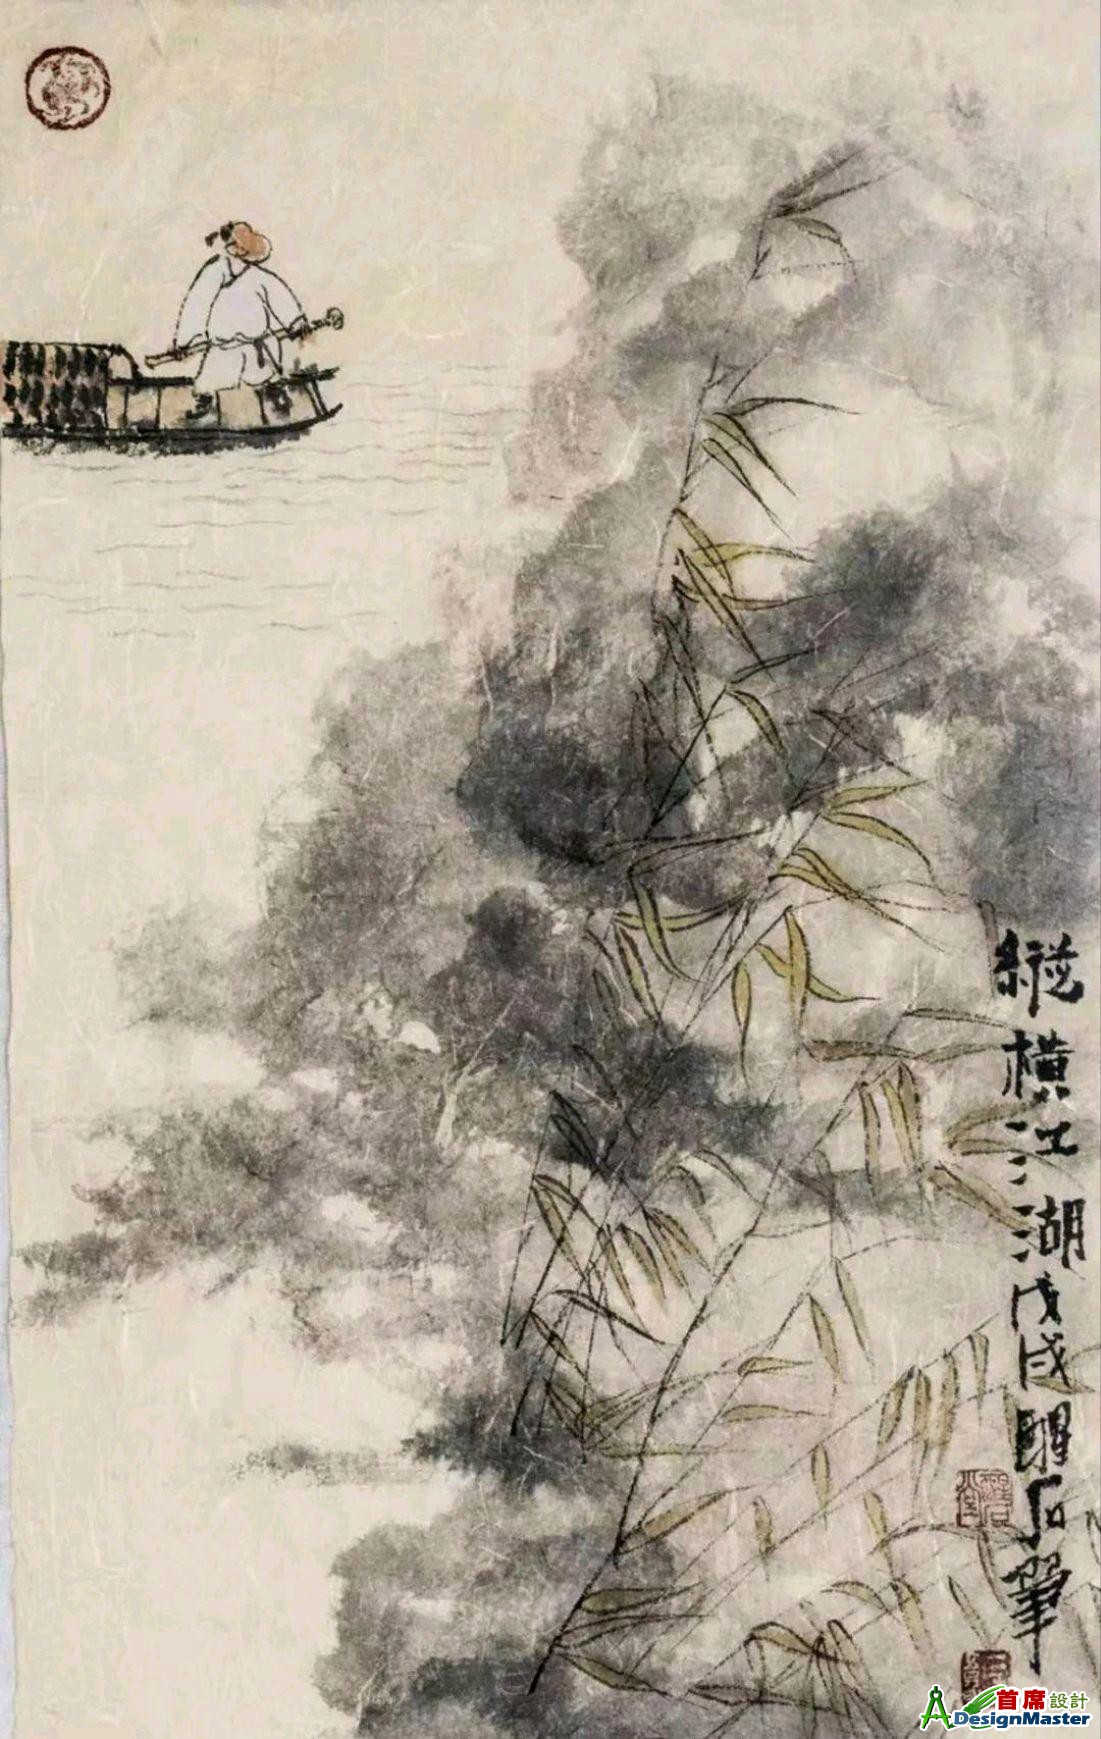 縱橫江湖戊戌醒石筆
首席設計
ADesignMaster